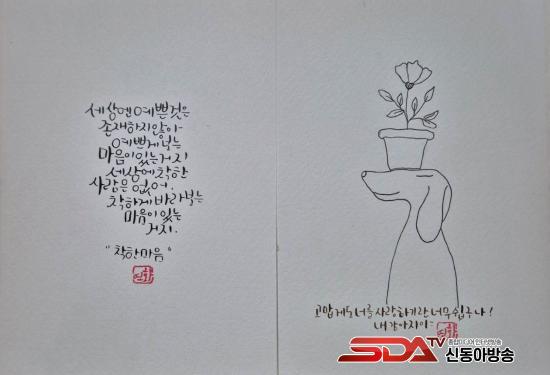 세상엔 예쁜것은
존재하지않아
예쁘게 보는
마음이 있는 거지
세상에 착한
사람은 없어.
착하게 바라보는
마음이 있는
거지.
"착한마음"
고맙게도 너를 사랑하기란 너무 쉽구나!
내 강아지야~
SDATV
종합미디어 인터넷방송
신동아방송